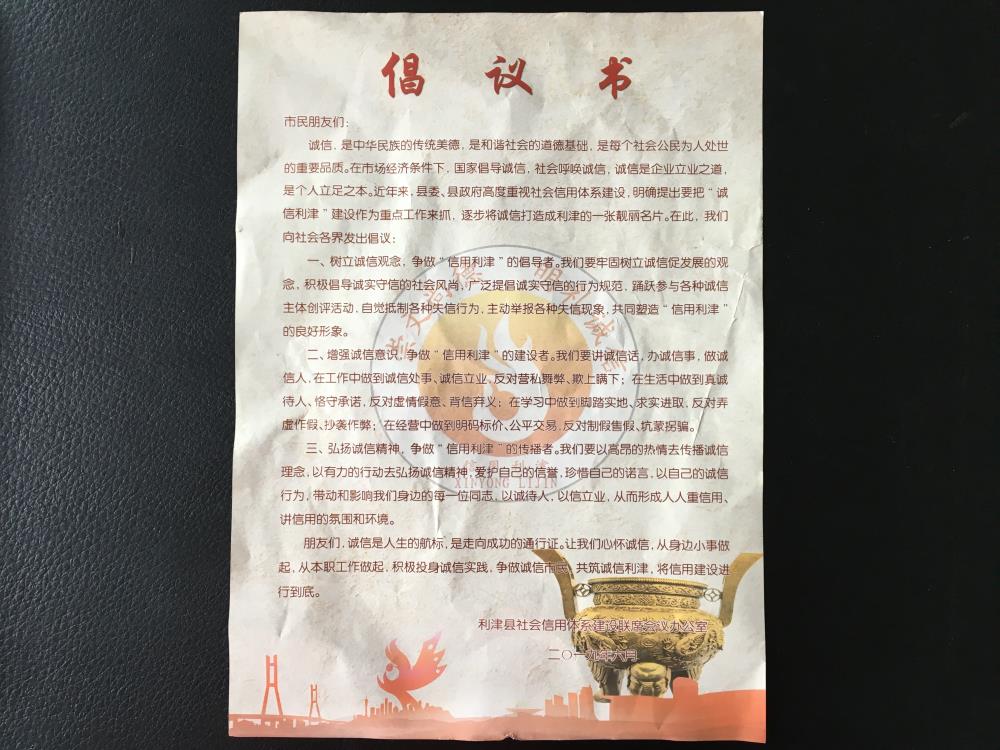 倡议书
市民朋友们：
诚信，是中华民族的传统美德，是和谐社会的道德基础，是每个社会公民为人处世
的重要品质。在市场经济条件下，国家倡导诚信，社会呼唤诚信，诚信是企业立业之道，
是个人立足之本。近年来，县委、县政府高度重视社会信用体系建设，明确提出要把“诚
信利津”建设作为重点工作来抓，逐步将诚信打造成利津的一张靓丽名片。在此，我们
向社会各界发出倡议：
一、树立诚信观念，争做“信用利津”的倡导者。我们要牢固树立诚信促发展的观
念，积极倡导诚实守信的社会风尚，广泛提倡诚实守信的行为规范，踊跃参与各种诚信
主体创评活动，自觉抵制各种失信行为，主动举报各种失信现象，共同塑造“信用利津”
的良好形象。
二、增强诚信意识，争做“信用利津”的建设者。我们要讲诚信话，办诚信事，做诚
信人，在工作中做到诚信处事、诚信立业，反对营私舞弊、欺上瞒下；在生活中做到真诚
待人、恪守承诺，反对虚情假意、背信弃义；在学习中做到脚踏实地、求实进取，反对弄
虚作假、抄袭作弊；在经营中做到明码标价、公平交易，反对制假售假、坑蒙拐骗。
三、弘扬诚信精神，争做“信用利津”的传播者。我们要以高昂的热情去传播诚信
理念，以有力的行动去弘扬诚信精神，爱护自己的信誉，珍惜自己的诺言，以自己的诚信
行为，带动和影响我们身边的每一位同志，以诚待人，以信立业，从而形成人人重信用、
讲信用的氛围和环境。
朋友们，诚信是人生的航标，是走向成功的通行证。让我们心怀诚信，从身边小事做
起，从本职工作做起，积极投身诚信实践，争做诚信市民，共筑诚信利津，将信用建设进
行到底。
利津县社会信用体系建设联席会议办公室
二〇一九年六月
崇文尚德 明礼诚信
信用利津
XINYONG LIJIN